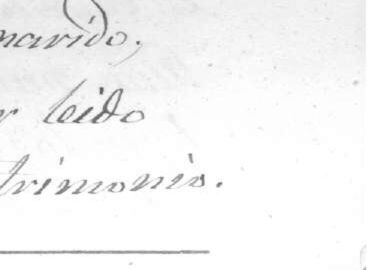 marido;
r leido
trimonio.